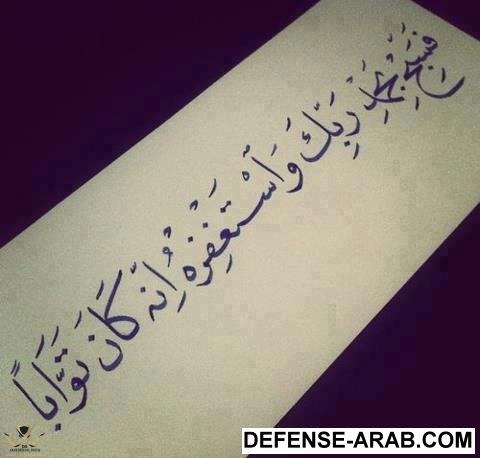 فسبح بحمد ربك واستغفره إنه كان توابا
DEFENSE-ARAB.COM